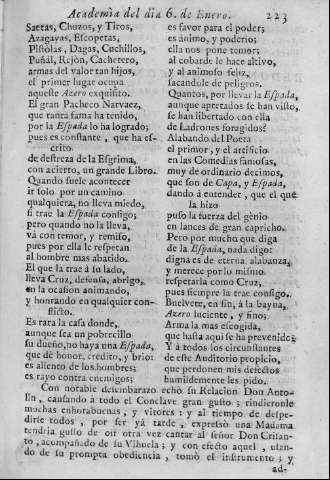 Academia del dia 6. de Enero. 223
Saetas, Chuzos, y Tiros,
Azagayas, Escopetas,
Pistolas, Dagas, Cuchillos,
Puñal, Rejòn, Cachetero,
armas del valor tan hijos,
el primer lugar ocupa
aqueste Azero exquisito.
El gran Pacheco Narvaez,
que tanta fama ha tenido,
por la Espada lo ha logrado;
pues es constante, que ha es-
crito
de destreza de la Esgrima,
con acierto, un grande Libro.
Quando suele acontecer
ir solo por un camino
qualquiera, no lleva miedo,
si trae la Espada consigo;
pero quando no la lleva,
và con temor, y remiso,
pues por ella le respetan
al hombre mas abatido.
El que la trae à su lado,
lleva Cruz, defensa, abrigo,
en la ocasion animando,
y honrando en qualquier con-
flicto.
Es rara la casa donde,
aunque sea un pobrecillo
su dueño, no haya una Espada,
que dè honor, credito, y brio:
es aliento de los hombres;
es rayo contra enemigos;
es favor para el poder;
es animo, y poderío;
ella nos pone temor;
al cobarde le hace altivo,
y al animoso feliz,
sacandole de peligros.
Quantos, por llevar la Espada,
aunque apretados se han visto,
se han libertado con ella
de Ladrones foragidos?
Alabando del Poeta
el primor, y el artificio
en las Comedias famosas,
muy de ordinario decimos,
que son de Capa, y Espada,
dando à entender, que el que
la hizo
puso la fuerza del genio
en lances de gran capricho.
Pero por mucho que diga
de la Espada, nada digo:
digna es de eterna alabanza,
y merece por lo mismo
respetarla como Cruz,
pues siempre la trae consigo.
Buelvete, en fin, à la bayna,
Azero luciente, y fino;
Arma la mas escogida,
que hasta aqui se ha prevenido;
Y à todos los circunstantes
de este Auditorio propicio,
que perdonen mis defectos
humildemente les pido.
Con notable desembarazo echò su Relacion Don Anto-
lin, causando à todo el Conclave gran gusto: rindieronle
muchas enhorabuenas, y vitores: y al tiempo de despe-
dirse todos, por ser yà tarde, expresò una Madama
tendria gusto de oir otra vez cantar al señor Don Critan-
to, acompañado de su Vihuela; y con efecto aquel, usan-
do de su prompta obediencia, tomò el instrumento; y
ad-